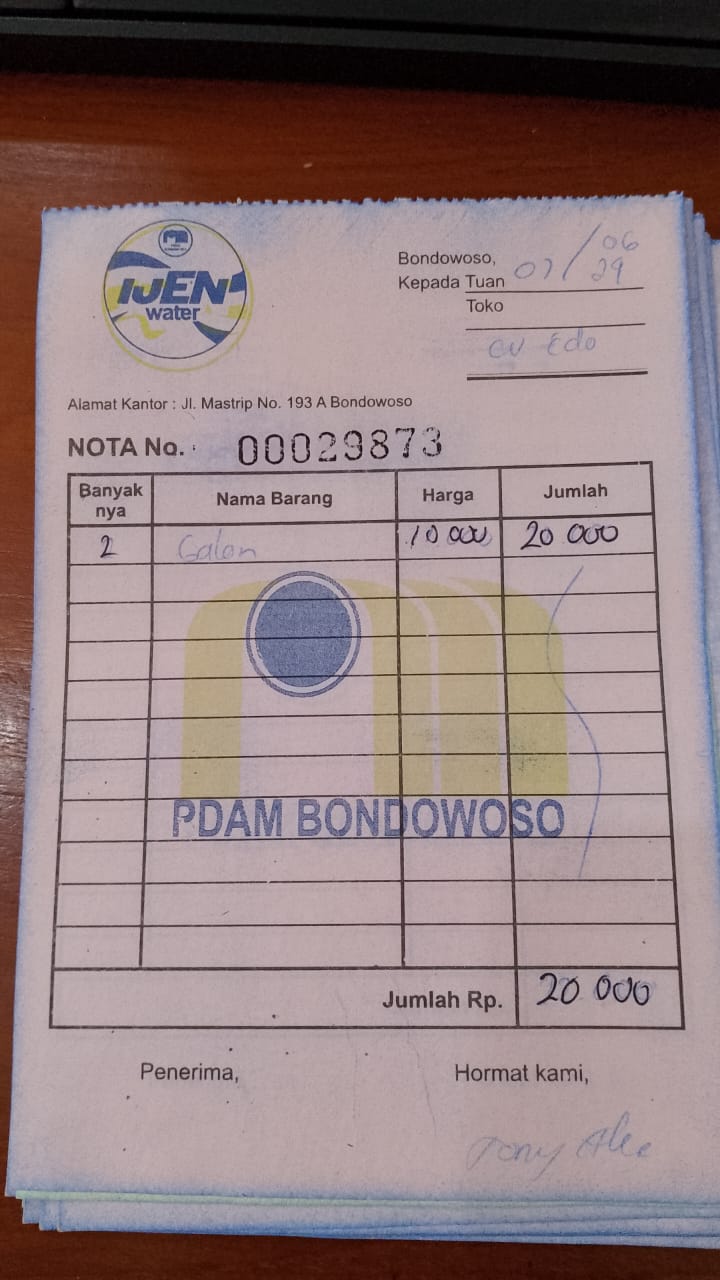 IJEN
water
Bondowoso, 07/06
Kepada Tuan
Toko
CV Edo
Alamat Kantor : Jl. Mastrip No. 193 A Bondowoso
NOTA No. : 00029873
Banyak nya Nama Barang Harga Jumlah
2 Galon 10 000 20 000
PDAM BONDOWOSO
Jumlah Rp. 20 000
Penerima, Hormat kami,
Tony